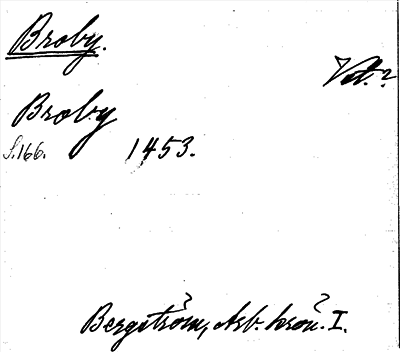 Broby.
Vet.?
Broby
S. 166. 1453.
Bergström, Arb. krön. I.